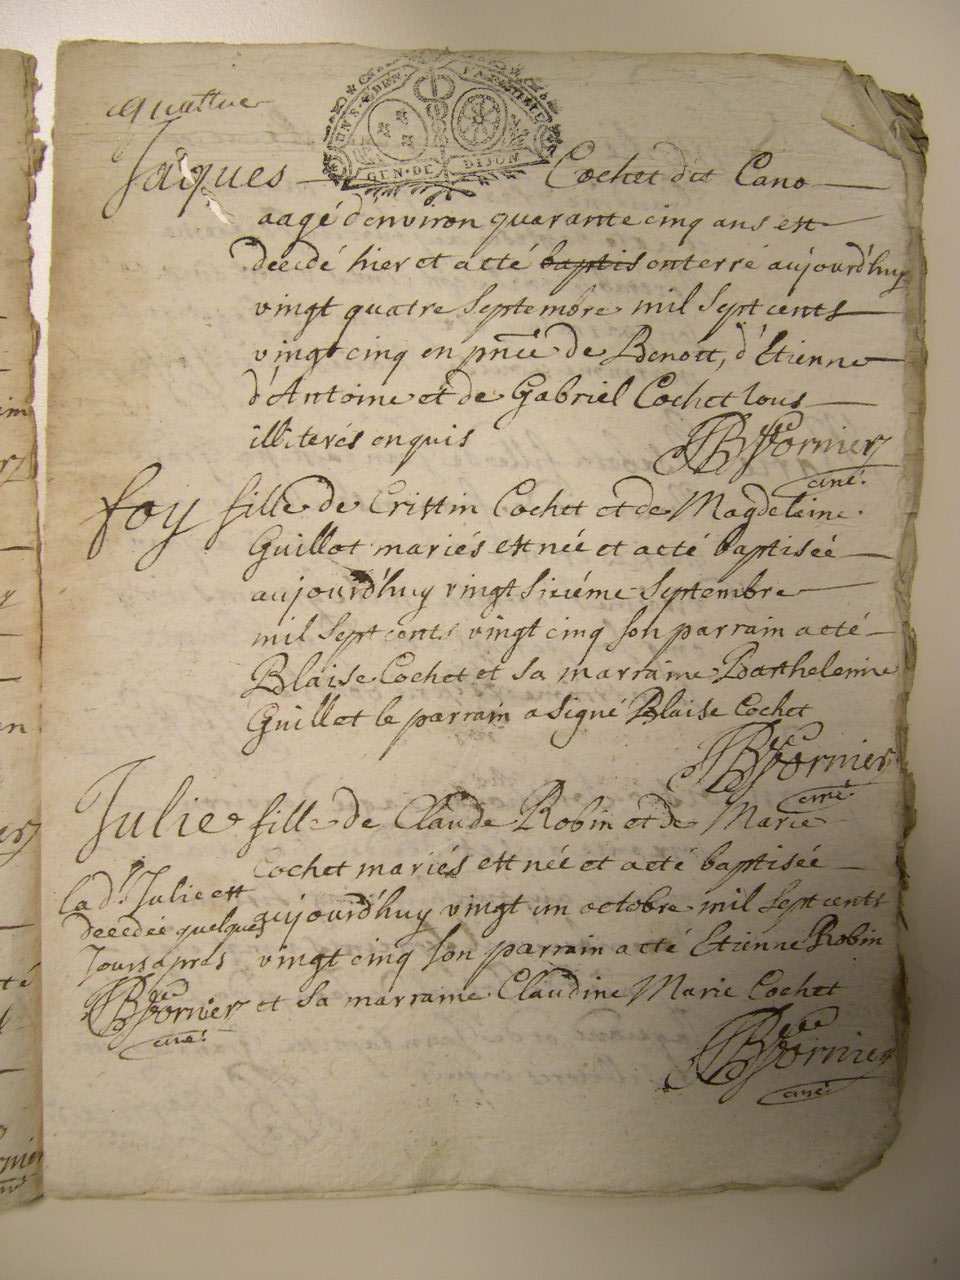 quattre
UN S. 8 DEN. LA FEUILLE
GEN. DE DIJON
Jaiques Cochet dit Cano
aagé d'environ quarante cinq ans est
decedé hier et a eté baptis enterré aujourd'huy
vingt quatre Septembre mil Sept cents
vingt cinq en pnce de Benoit, d'Etienne
d'Antoine et de Gabriel Cochet tous
illiterés enquis
JB Fornier
curé.
foy fille de Cristin Cochet et de Magdeleine
Guillot mariés est née et a eté baptisée
aujourd'huy vingt sixiéme Septembre
mil Sept cents vingt cinq son parrain a eté
Blaise Cochet et sa marraine Barthelemie
Guillet le parrain a signé Blaise Cochet
JB Fornier
curé.
Julie fille de Claude Robin et de Marie
Cochet mariés est née et a eté baptisée
aujourd'huy vingt un octobre mil Sept cents
vingt cinq son parrain a eté Etienne Robin
et sa marraine Claudine Marie Cochet
JB Fornier
curé
Lad. Julie est
decedée quelques
Jours apres
JB Fornier
curé.